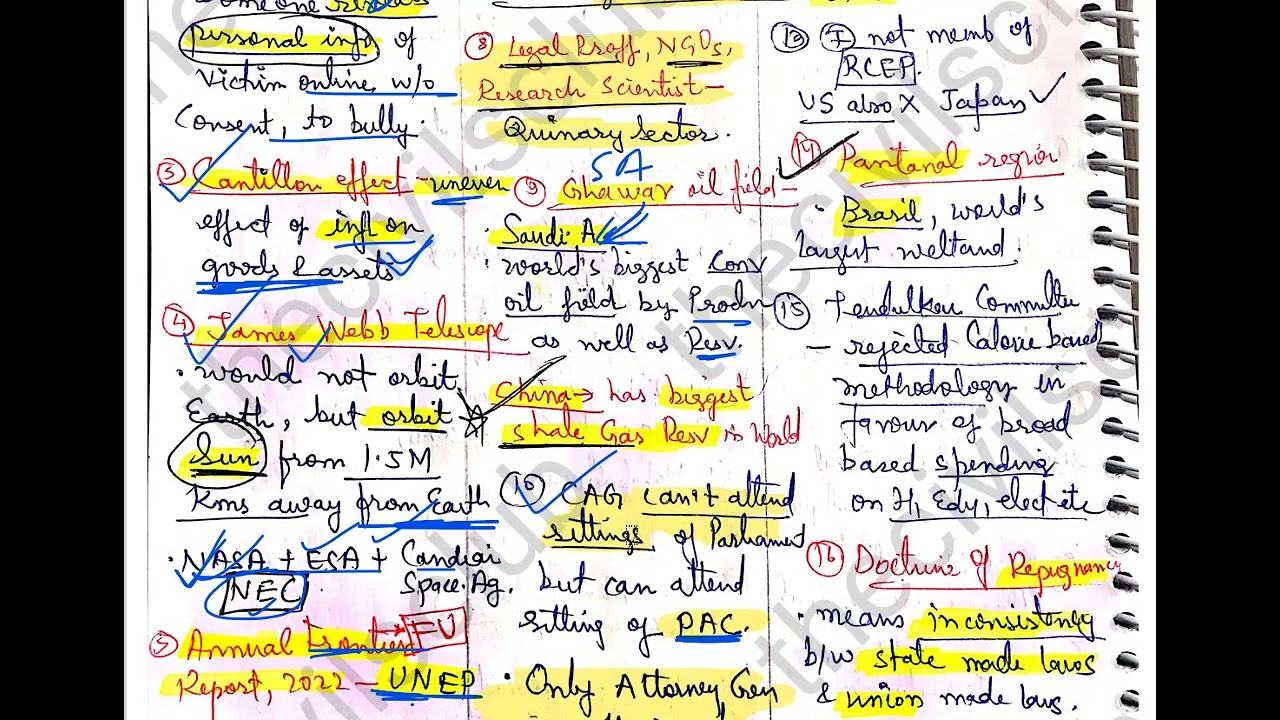 personal info of
Victim online w/o
Consent, to bully.
③ Cantillon effect - uneven
effect of infl on
goods & assets
④ James Webb Telescope
• would not orbit
Earth, but orbit
Sun from 1.5M
Kms away from Earth
• NASA + ESA +
Space. Ag.
NEC
EU
5) Annual Frontier
Report, 2022 - UNEP
⑧ Legal Proff, NGOs,
Research Scientist -
Quinary Sector.
SA
⑨ Ghawar oil field -
• Saudi A
• world's biggest Conv
oil field by Prodn
as well as Resv.
China → has biggest
shale Gas Resv in World
⑩ CAG can't attend
sittings of Parliament
but can attend
sitting of PAC.
• Only Attorney Gen
⑬ not memb of
RCEP.
US also X Japan ✓
⑭ Pantanal region
• Brasil, world's
largest wetland.
⑮ Tendulkar Committe
- rejected Calorie based
methodology in
favour of broad
based spending
on H, Edy, elect etc
⑯ Doctrine of Repugnancy
• means inconsistency
b/w state made laws
& union made laws.
thecivilsclub